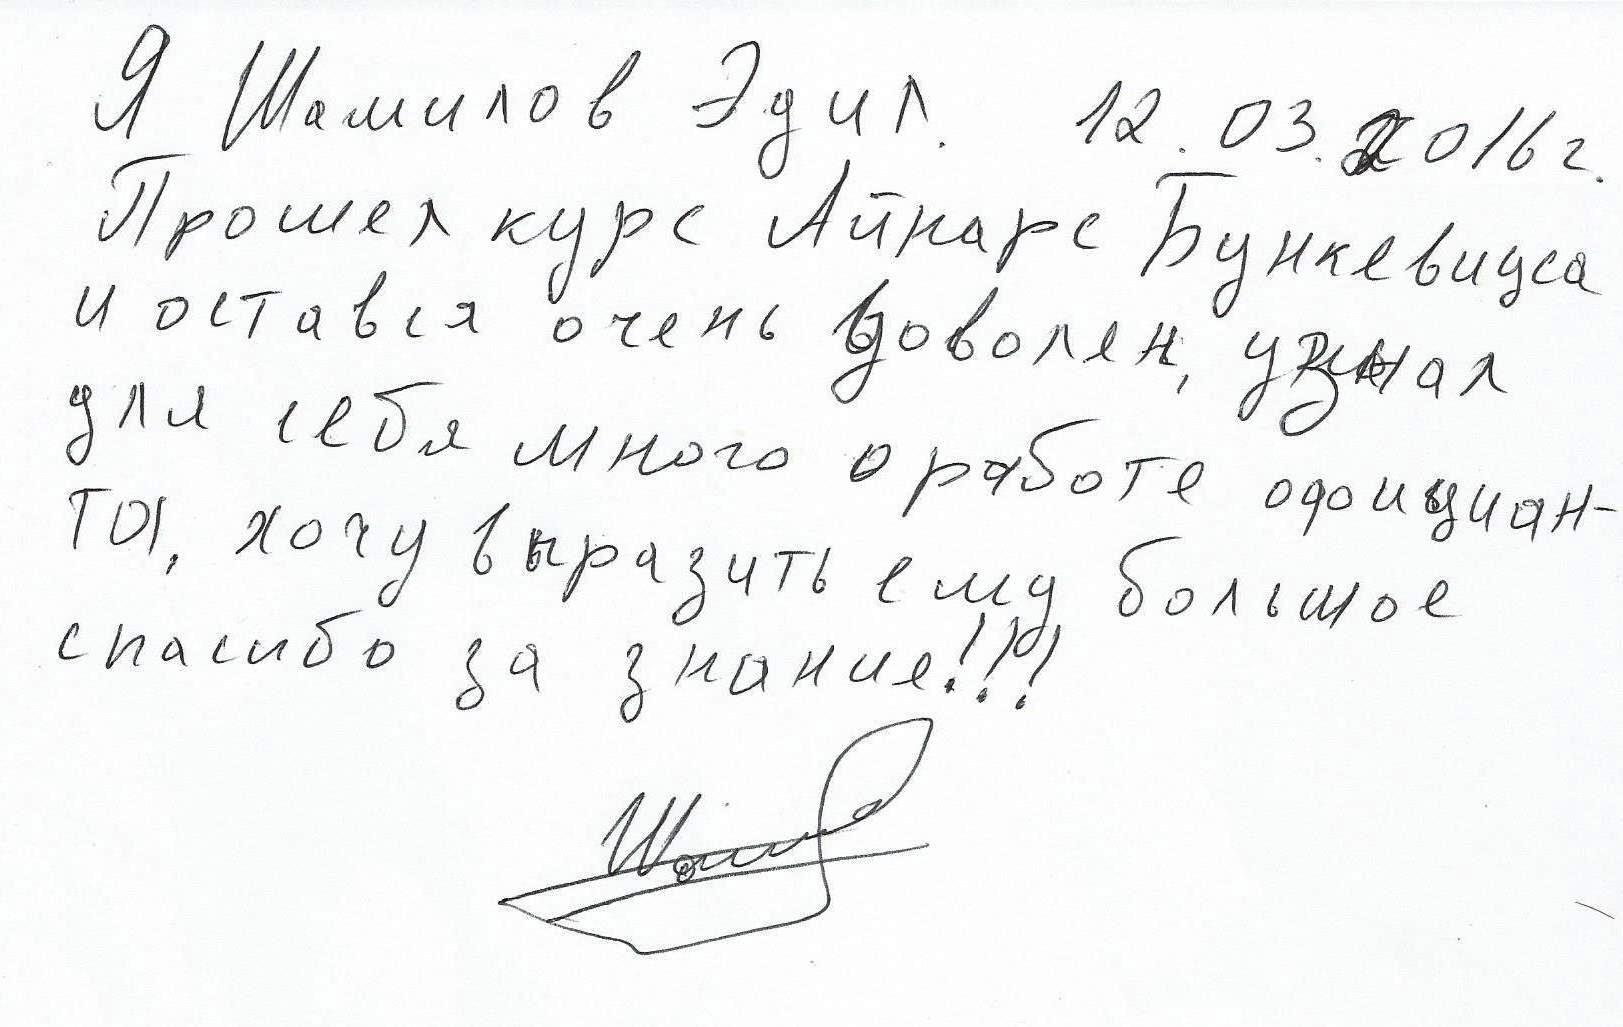 Я Шамилов Эдил. 12.03.2016г.
Прошел курс Айнарс Бункевицса
и остався очень доволен, узнал
для себя много о работе официан-
та, хочу выразить ему большое
спасибо за знание!!!